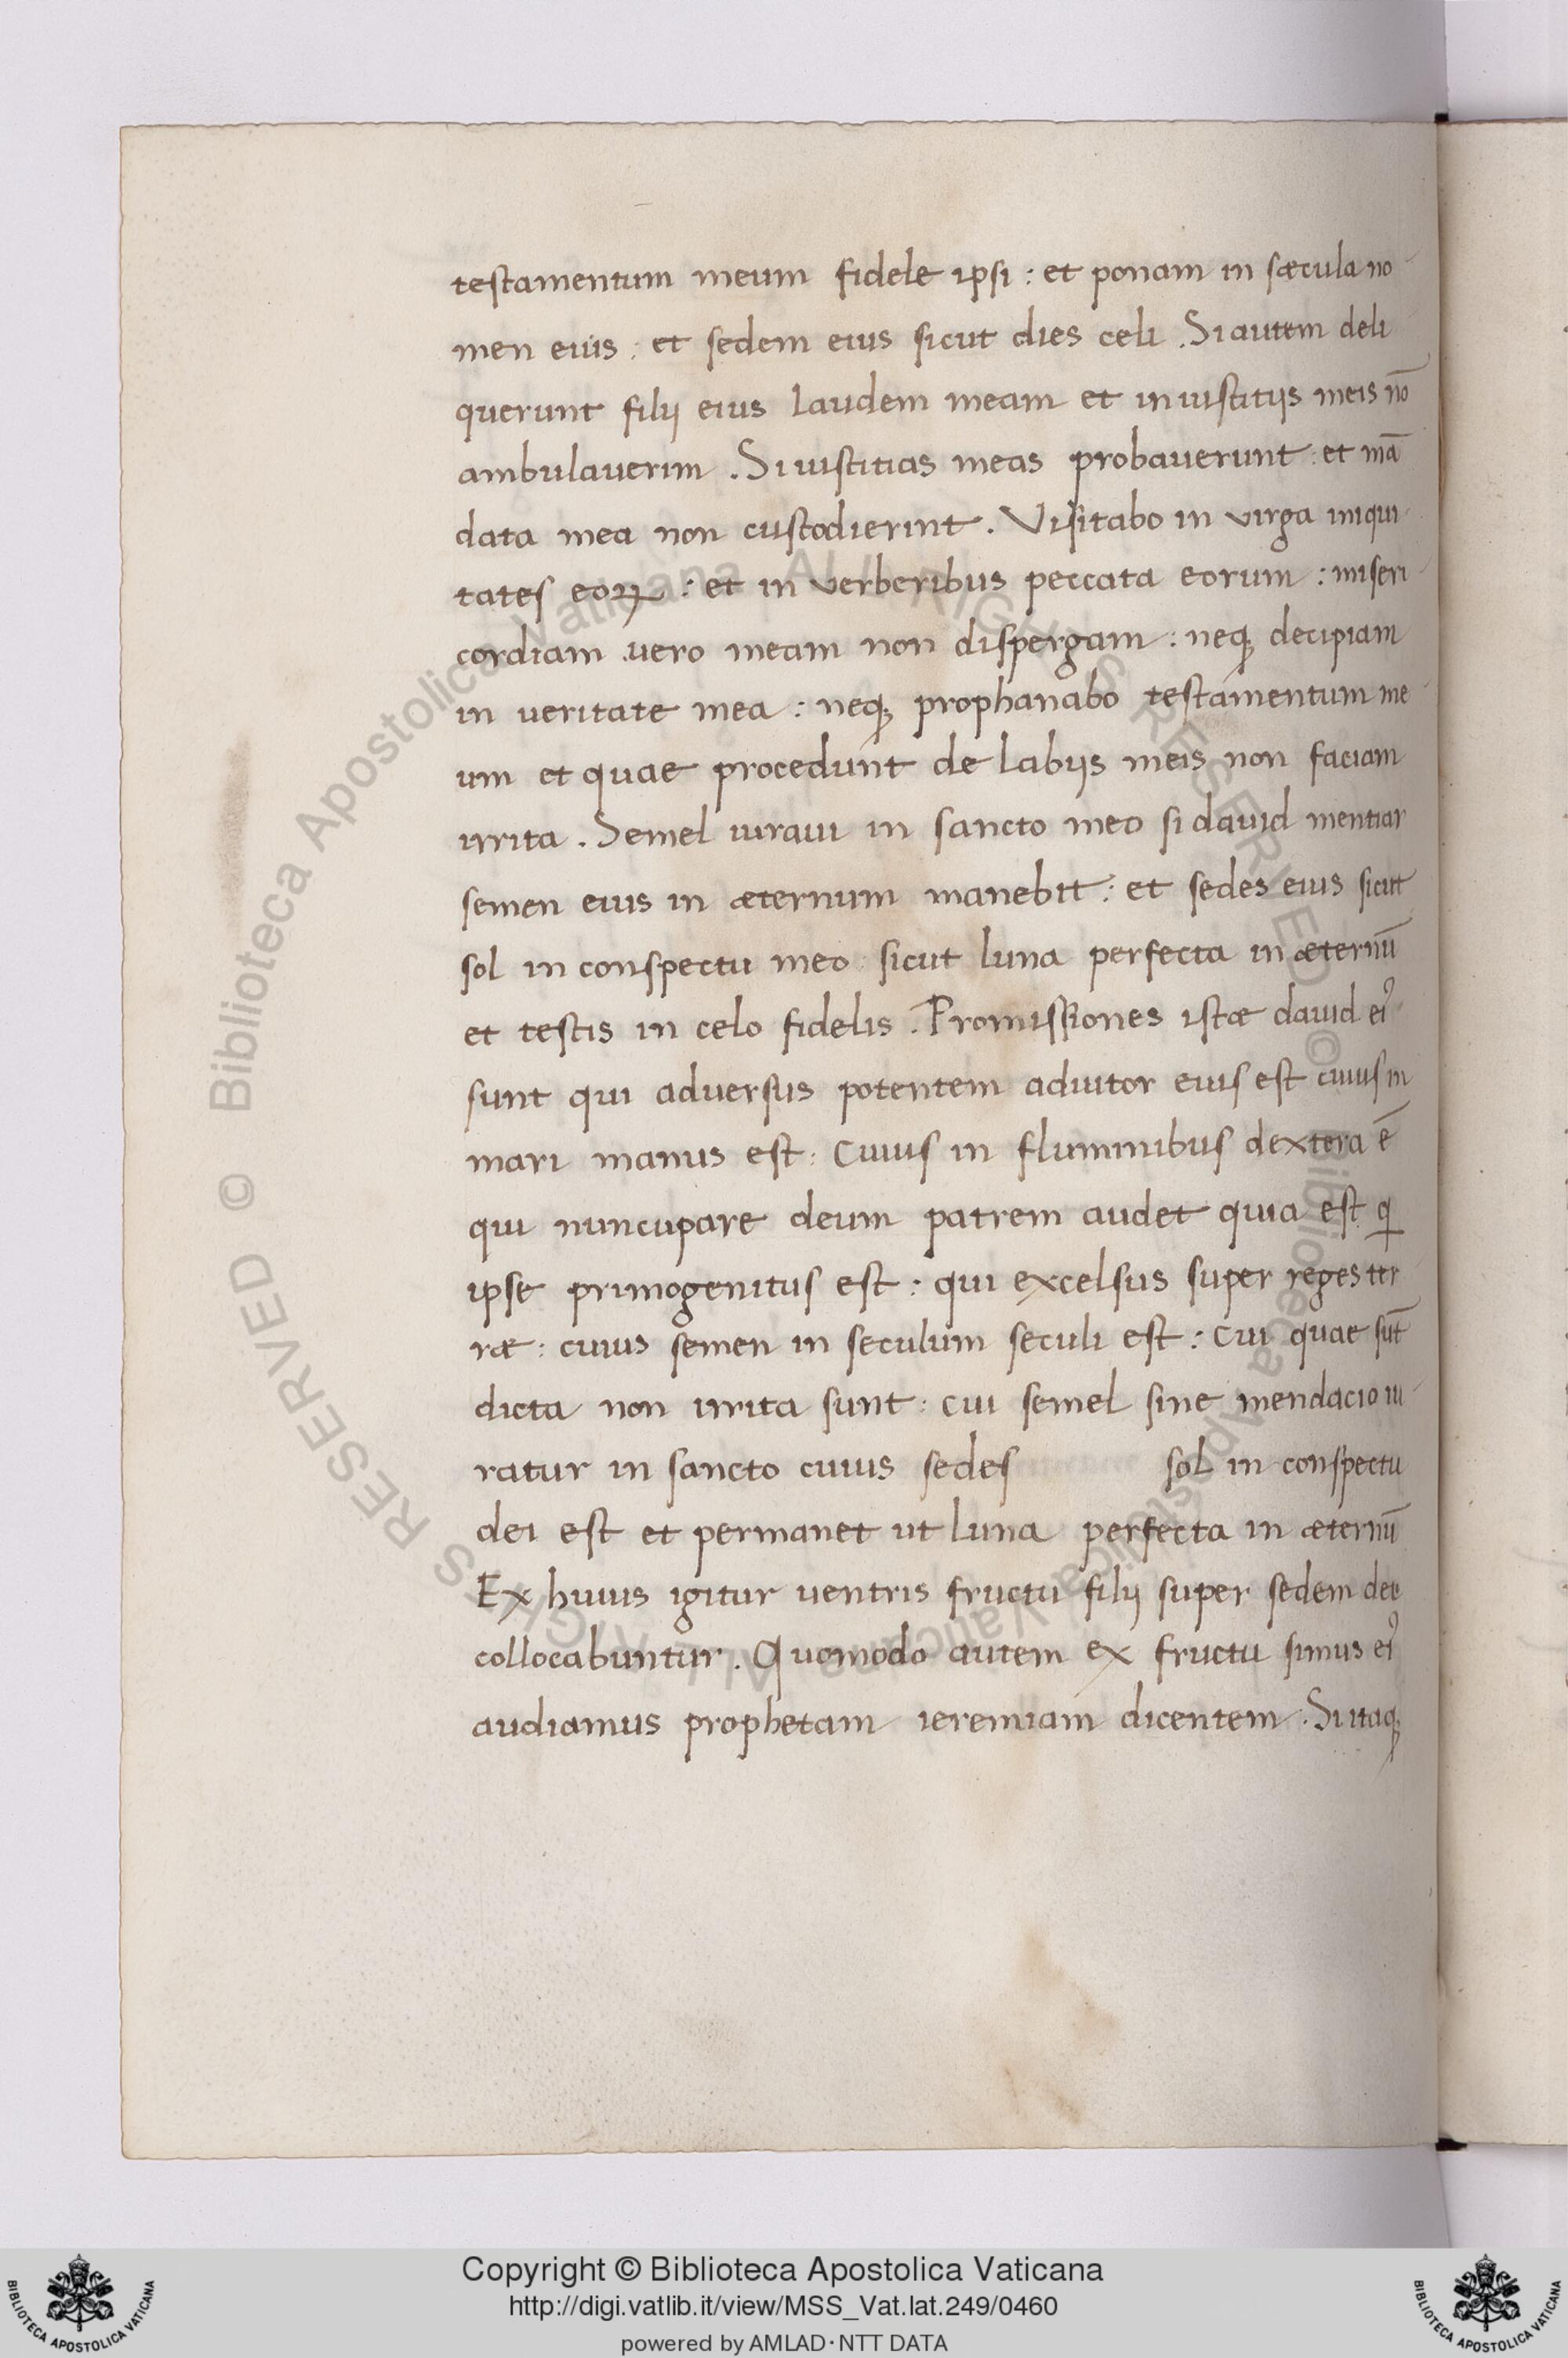 testamentum meum fidele ipsi : et ponam in sæcula no
men eius : et sedem eius sicut dies celi . Si autem deli
querunt filij eius laudem meam et in iustitijs meis nō
ambulauerim . Si iustitias meas probauerunt : et mā
data mea non custodierint . Visitabo in virga iniqui
tates eoꝝ : et in verberibus peccata eorum : miseri
cordiam vero meam non dispergam : neqꝫ decipiam
in veritate mea : neqꝫ prophanabo testamentum me
um et quae procedunt de labijs meis non faciam
irrita . Semel iuraui in sancto meo si dauid mentiar
semen eius in æternum manebit : et sedes eius sicut
sol in conspectu meo : sicut luna perfecta in æternū
et testis in celo fidelis . Promissiones istæ dauid eiꝰ
sunt qui adversus potentem adiutor eius est cuius in
mari manus est : cuius in fluminibus dextera ē
qui nuncupare deum patrem audet quia est q
ipse primogenitus est : qui excelsus super reges ter
ræ : cuius semen in seculum seculi est : cui quae sūt
dicta non irrita sunt : cui semel sine mendacio iu
ratur in sancto cuius sedes sol in conspectu
dei est et permanet ut luna perfecta in æternū
Ex huius igitur uentris fructu filij super sedem dei
collocabuntur . Quomodo autem ex fructu simus eiꝰ
audiamus prophetam ieremiam dicentem . Si itaqꝫ
© Biblioteca Apostolica Vaticana ALL RIGHTS RESERVED
© Biblioteca Apostolica Vaticana ALL RIGHTS RESERVED
Copyright © Biblioteca Apostolica Vaticana
http://digi.vatlib.it/view/MSS_Vat.lat.249/0460
powered by AMLAD·NTT DATA
BIBLIOTECA APOSTOLICA VATICANA
BIBLIOTECA APOSTOLICA VATICANA